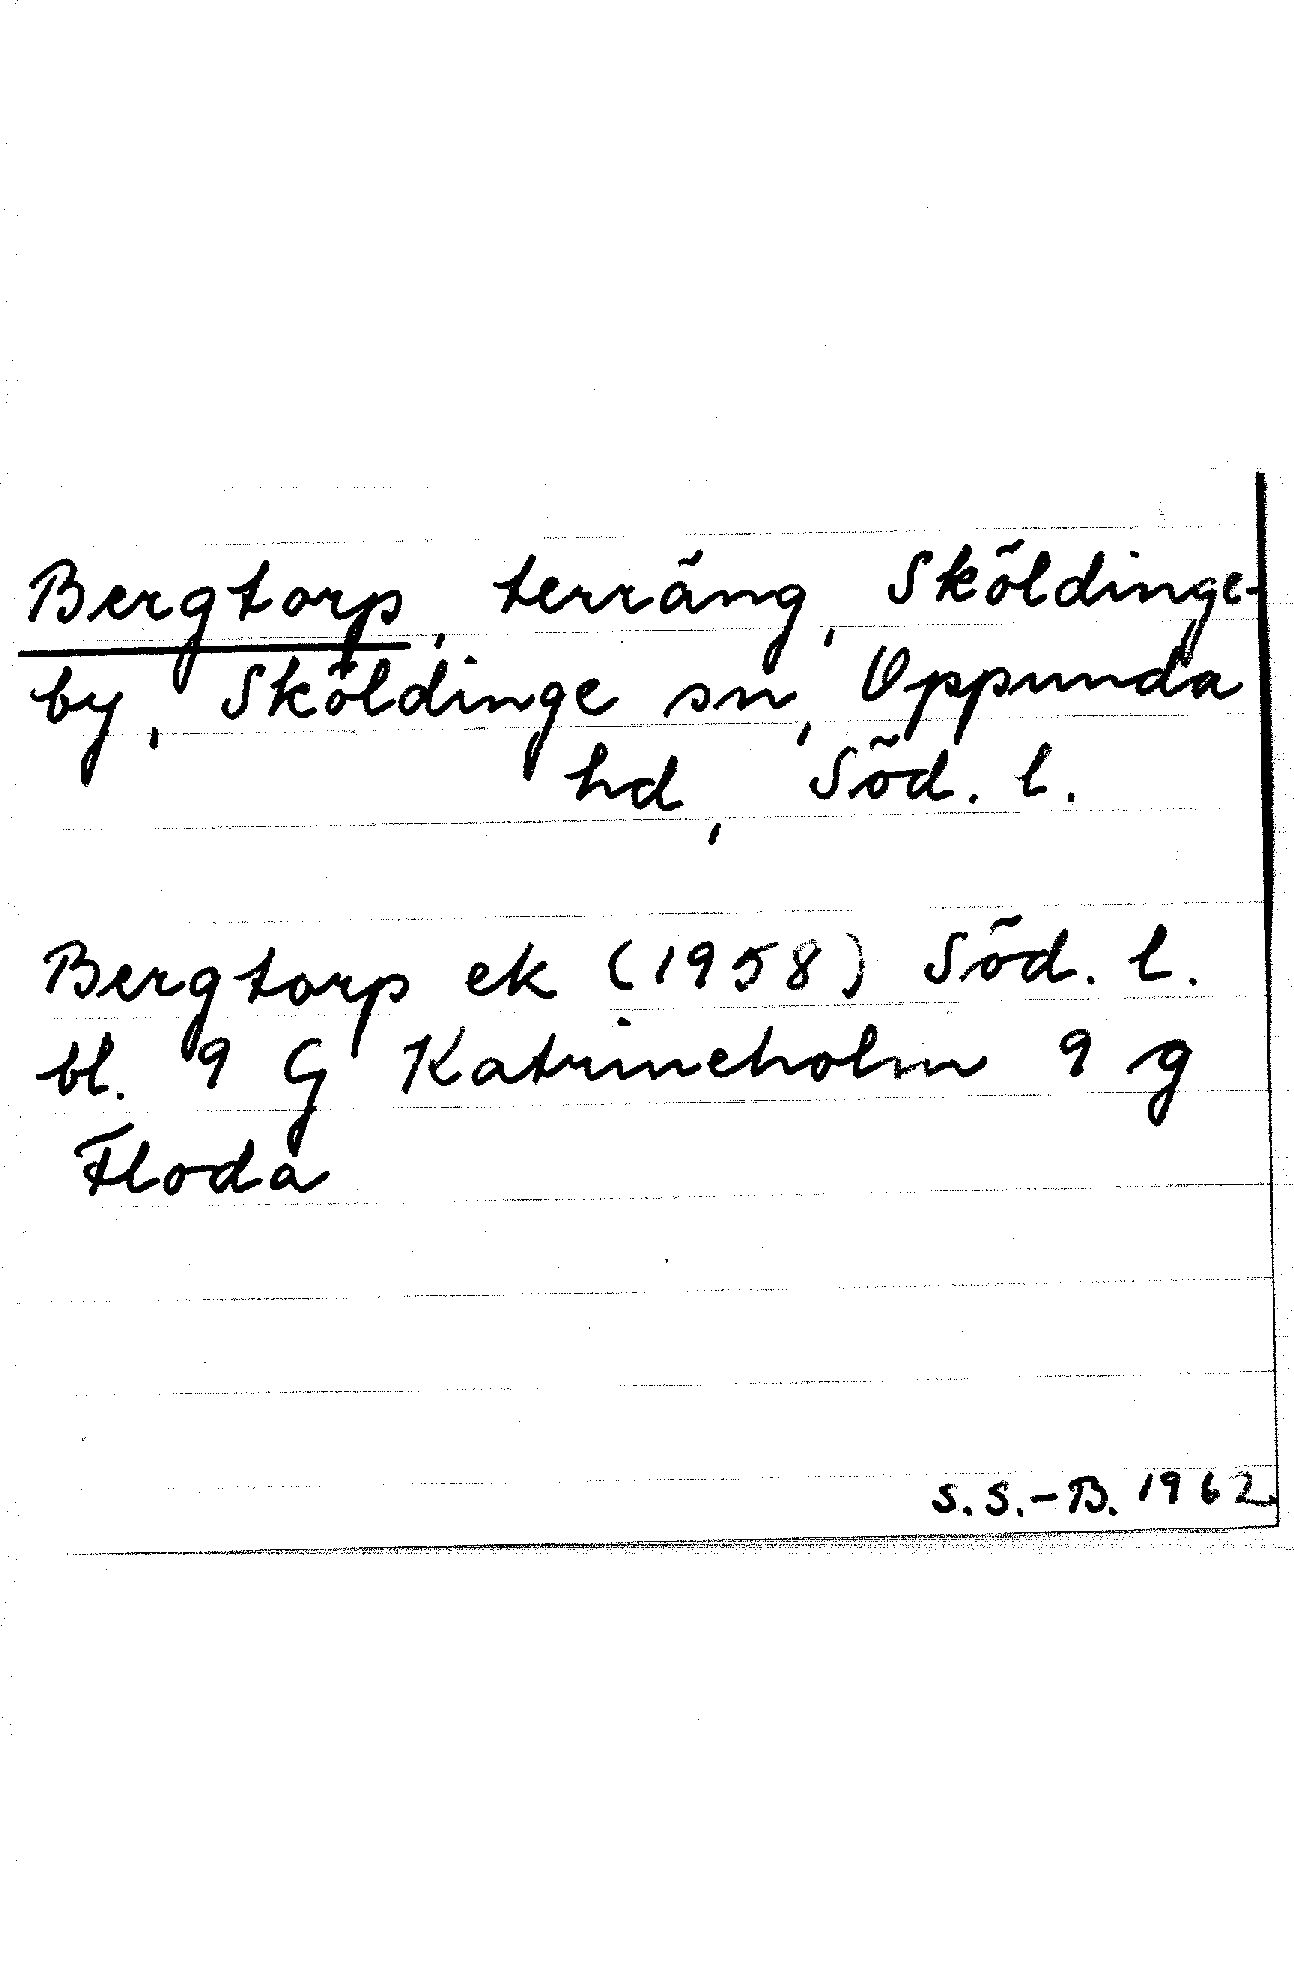 Bergtorp, terräng, Sköldinge-
by, Sköldinge sn, Oppunda
hd, Söd. l.
Bergtorp ek (1958) Söd. l.
bl. 9 G Katrineholm 9 g
Floda
S.S.-B. 1962